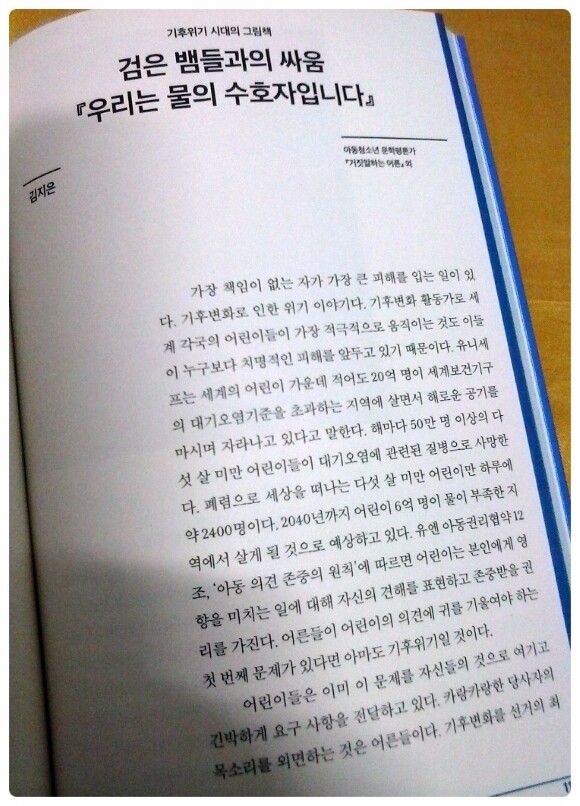 기후위기 시대의 그림책
검은 뱀들과의 싸움
『우리는 물의 수호자입니다』
김지은
아동청소년 문학평론가
『거짓말하는 어른』 외
가장 책임이 없는 자가 가장 큰 피해를 입는 일이 있
다. 기후변화로 인한 위기 이야기다. 기후변화 활동가로 세
계 각국의 어린이들이 가장 적극적으로 움직이는 것도 이들
이 누구보다 치명적인 피해를 앞두고 있기 때문이다. 유니세
프는 세계의 어린이 가운데 적어도 20억 명이 세계보건기구
의 대기오염기준을 초과하는 지역에 살면서 해로운 공기를
마시며 자라나고 있다고 말한다. 해마다 50만 명 이상의 다
섯 살 미만 어린이들이 대기오염에 관련된 질병으로 사망한
다. 폐렴으로 세상을 떠나는 다섯 살 미만 어린이만 하루에
약 2400명이다. 2040년까지 어린이 6억 명이 물이 부족한 지
역에서 살게 될 것으로 예상하고 있다. 유엔 아동권리협약 12
조, ‘아동 의견 존중의 원칙’에 따르면 어린이는 본인에게 영
향을 미치는 일에 대해 자신의 견해를 표현하고 존중받을 권
리를 가진다. 어른들이 어린이의 의견에 귀를 기울여야 하는
첫 번째 문제가 있다면 아마도 기후위기일 것이다.
어린이들은 이미 이 문제를 자신들의 것으로 여기고
긴박하게 요구 사항을 전달하고 있다. 카랑카랑한 당사자의
목소리를 외면하는 것은 어른들이다. 기후변화를 선거의 최